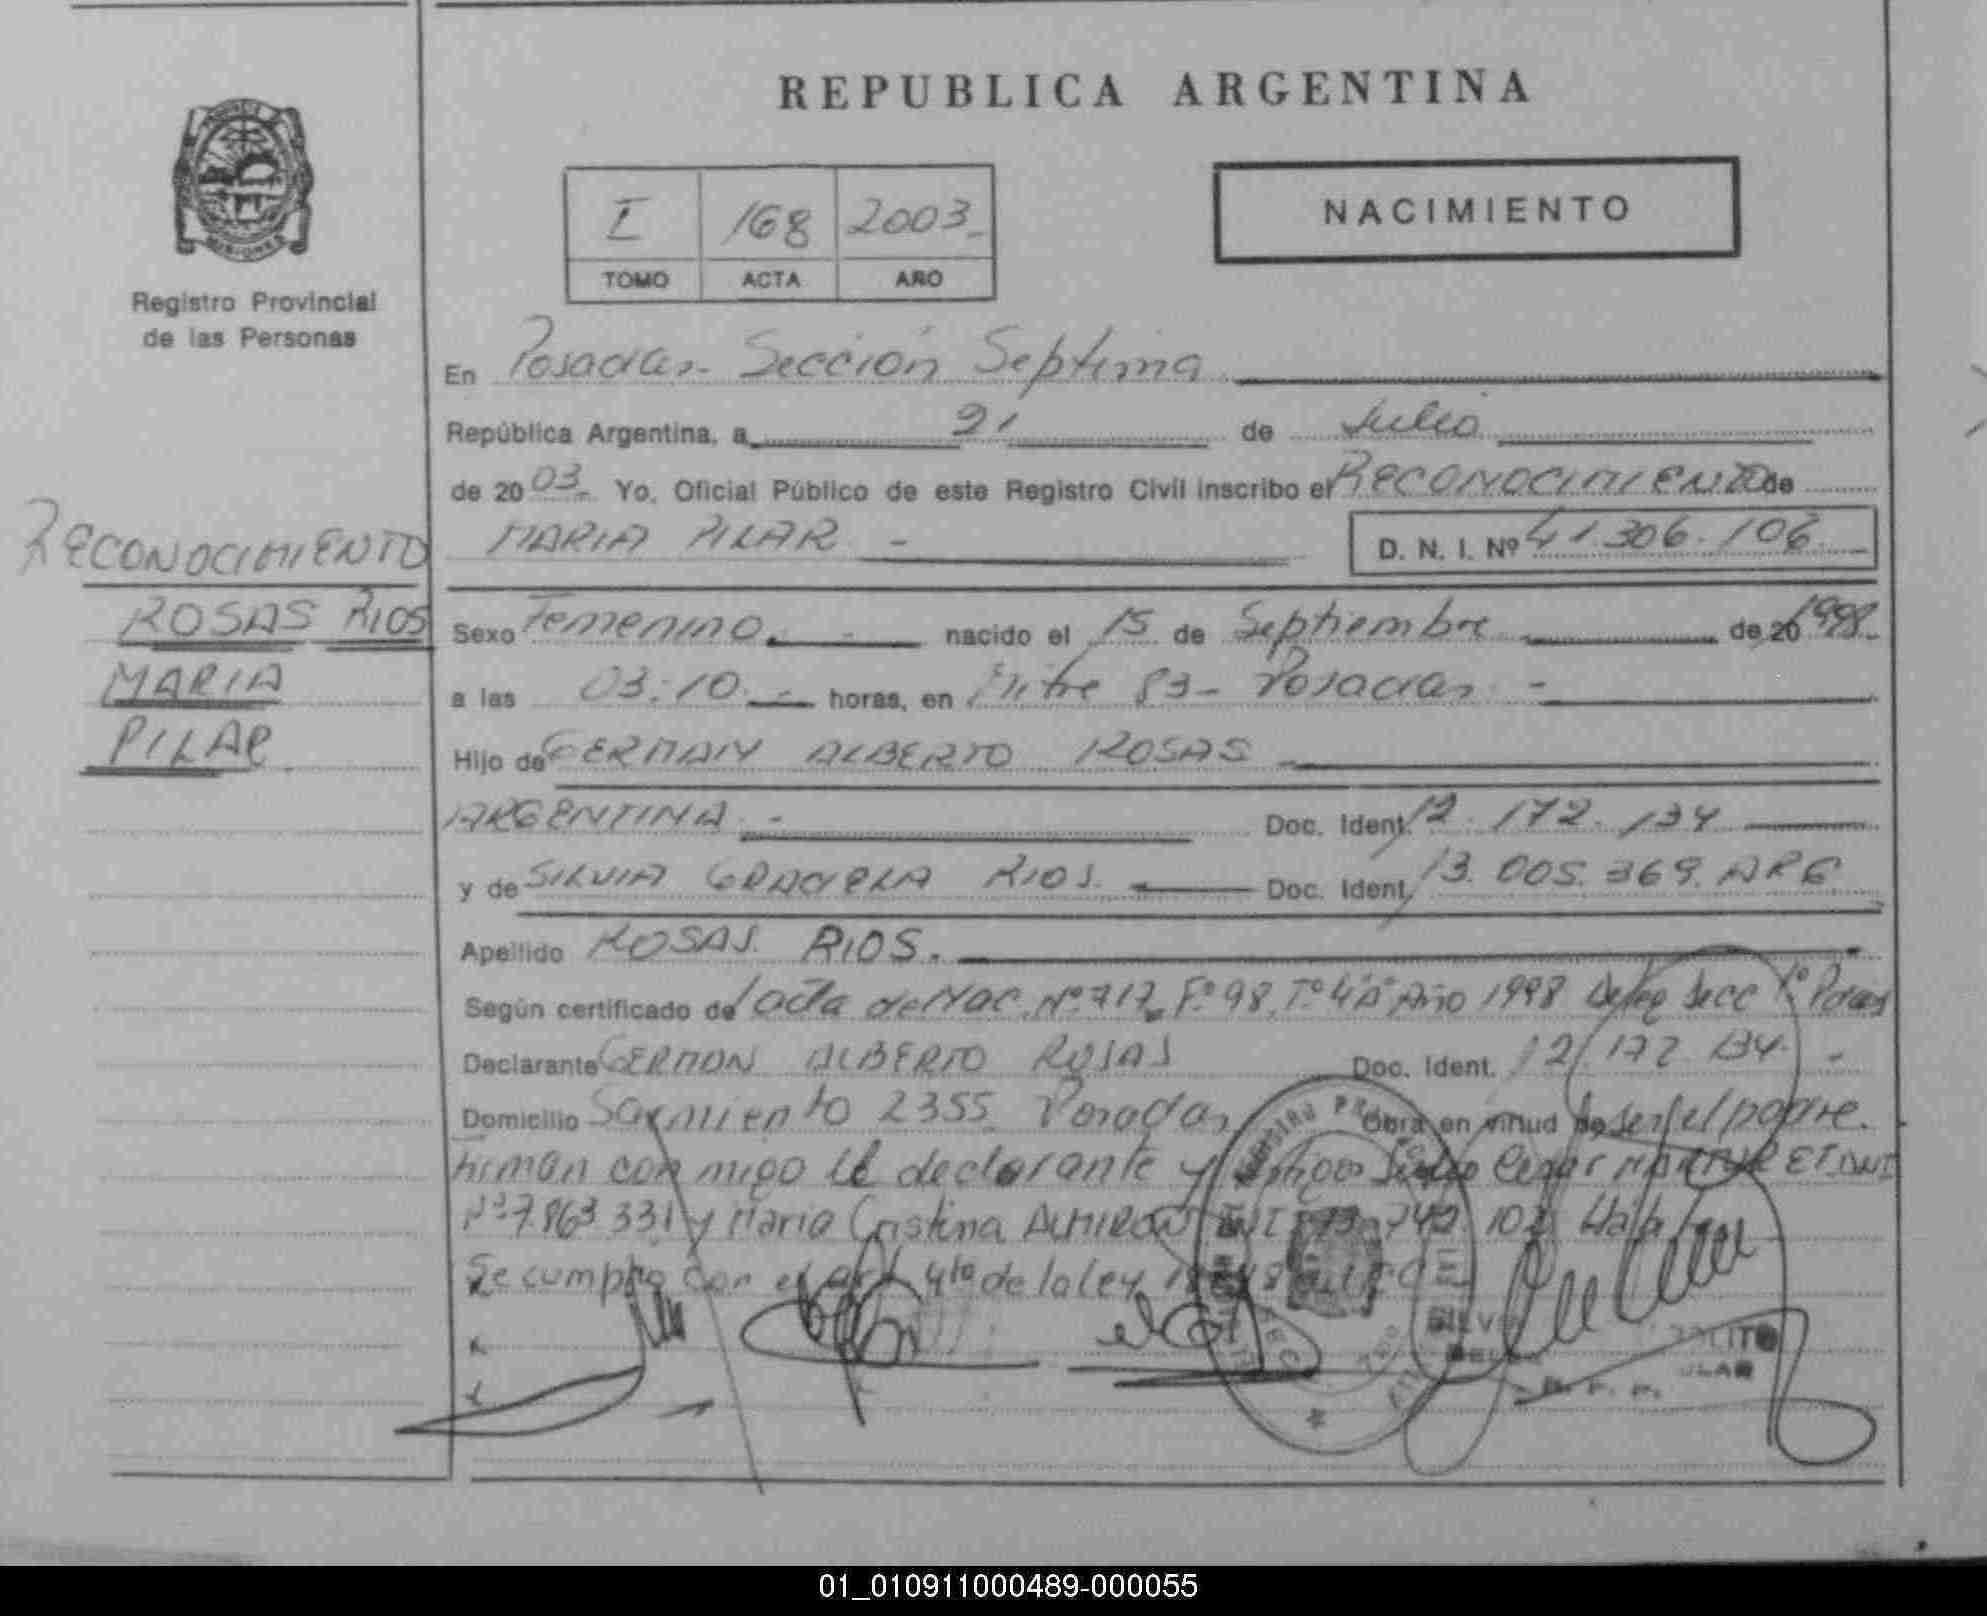 REPUBLICA ARGENTINA
I 168 2003
TOMO ACTA AÑO
NACIMIENTO
MISIONES
Registro Provincial
de las Personas
En Posadas - Sección Septima
República Argentina, a 21 de Julio
de 2003 Yo, Oficial Público de este Registro Civil inscribo el RECONOCIMIENTO de
MARIA PILAR - D. N. I. Nº 41.306.106
RECONOCIMIENTO
ROSAS RIOS
MARIA
PILAR
Sexo Femenino nacido el 15 de Septiembre de 20 1998
a las 03:10 horas, en Mitre 83 - Posadas -
Hijo de GERMAN ALBERTO ROSAS
ARGENTINA - Doc. Ident. 12.172.134
y de SILVIA GRACIELA RIOS. Doc. Ident. 13.005.369. ARG.
Apellido ROSAS RIOS.
Según certificado de acta de Nac. Nº 717, Fº 98, Tº 4"A" Año 1998 Secc 1º
Declarante GERMAN ALBERTO ROSAS Doc. Ident. 12.172.134 -
Domicilio Sarmiento 2355 Posadas Obra en virtud de ser el padre.
Firman con migo el declarante y Cesar
Nº 7.863.331 y Maria Cristina ALMIRON
Se cumplio con el art 4to de la ley
01_010911000489-000055